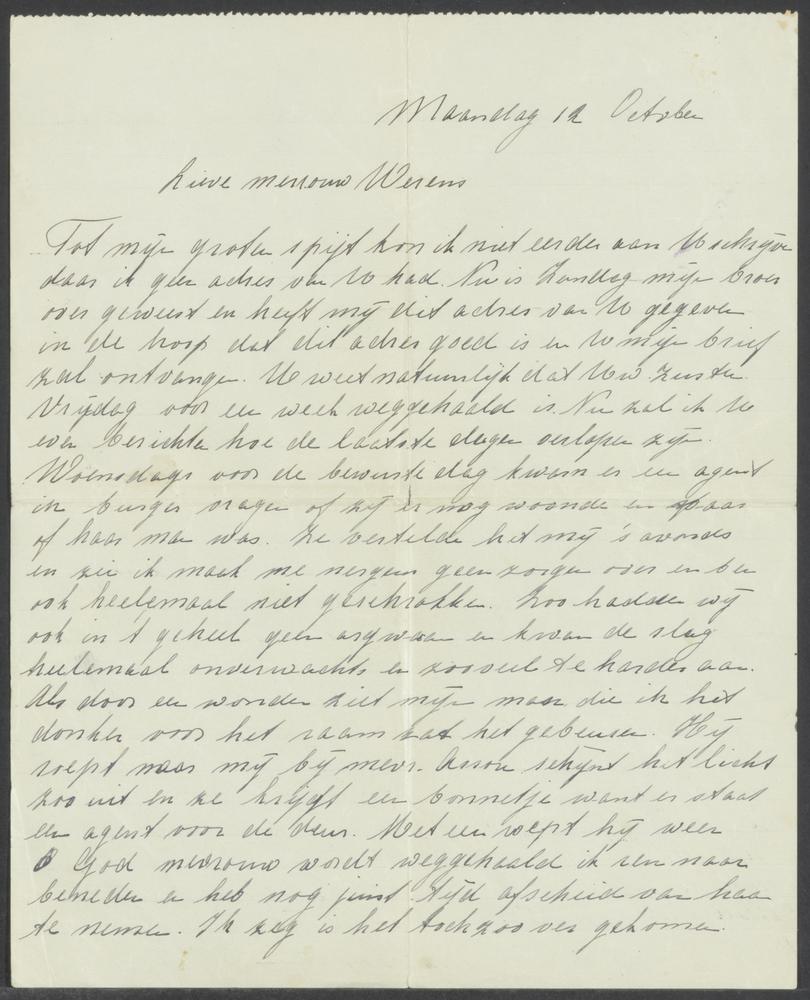 Maandag 12 October
Lieve mevrouw Werens
Tot mijn groten spijt kon ik niet eerder aan U schrijven
daar ik geen adres van U had. Nu is Zondag mijn broer
over geweest en heeft mij dit adres van U gegeven
in de hoop dat dit adres goed is en U mijn brief
zal ontvangen. U weet natuurlijk dat Uw Zuster
Vrijdag voor een week weggehaald is. Nu zal ik U
even berichten hoe de laatste dagen verlopen zijn.
Woensdags voor de bewuste dag kwam er een agent
in burger vragen of zij er nog woonde en waar
of haar man was. Ze vertelde het mij 's avonds
en zei ik maak me nergens geen zorgen over en ben
ook heelemaal niet geschrokken. Zoo hadden wij
ook in 't geheel geen argwaan en kwam de slag
heelemaal onverwachts en zooveel te harder aan.
Als door een wonder ziet mijn man die in het
donker voor het raam zat het gebeuren. Hij
roept naar mij bij mevr. Asson schijnt het licht
zoo uit en ze krijgt een bonnetje want er staat
een agent voor de deur. Met een roept hij weer
O God mevrouw wordt weggehaald ik ren naar
beneden en heb nog juist tijd afscheid van haar
te nemen. Ik zeg is het toch zoo ver gekomen.